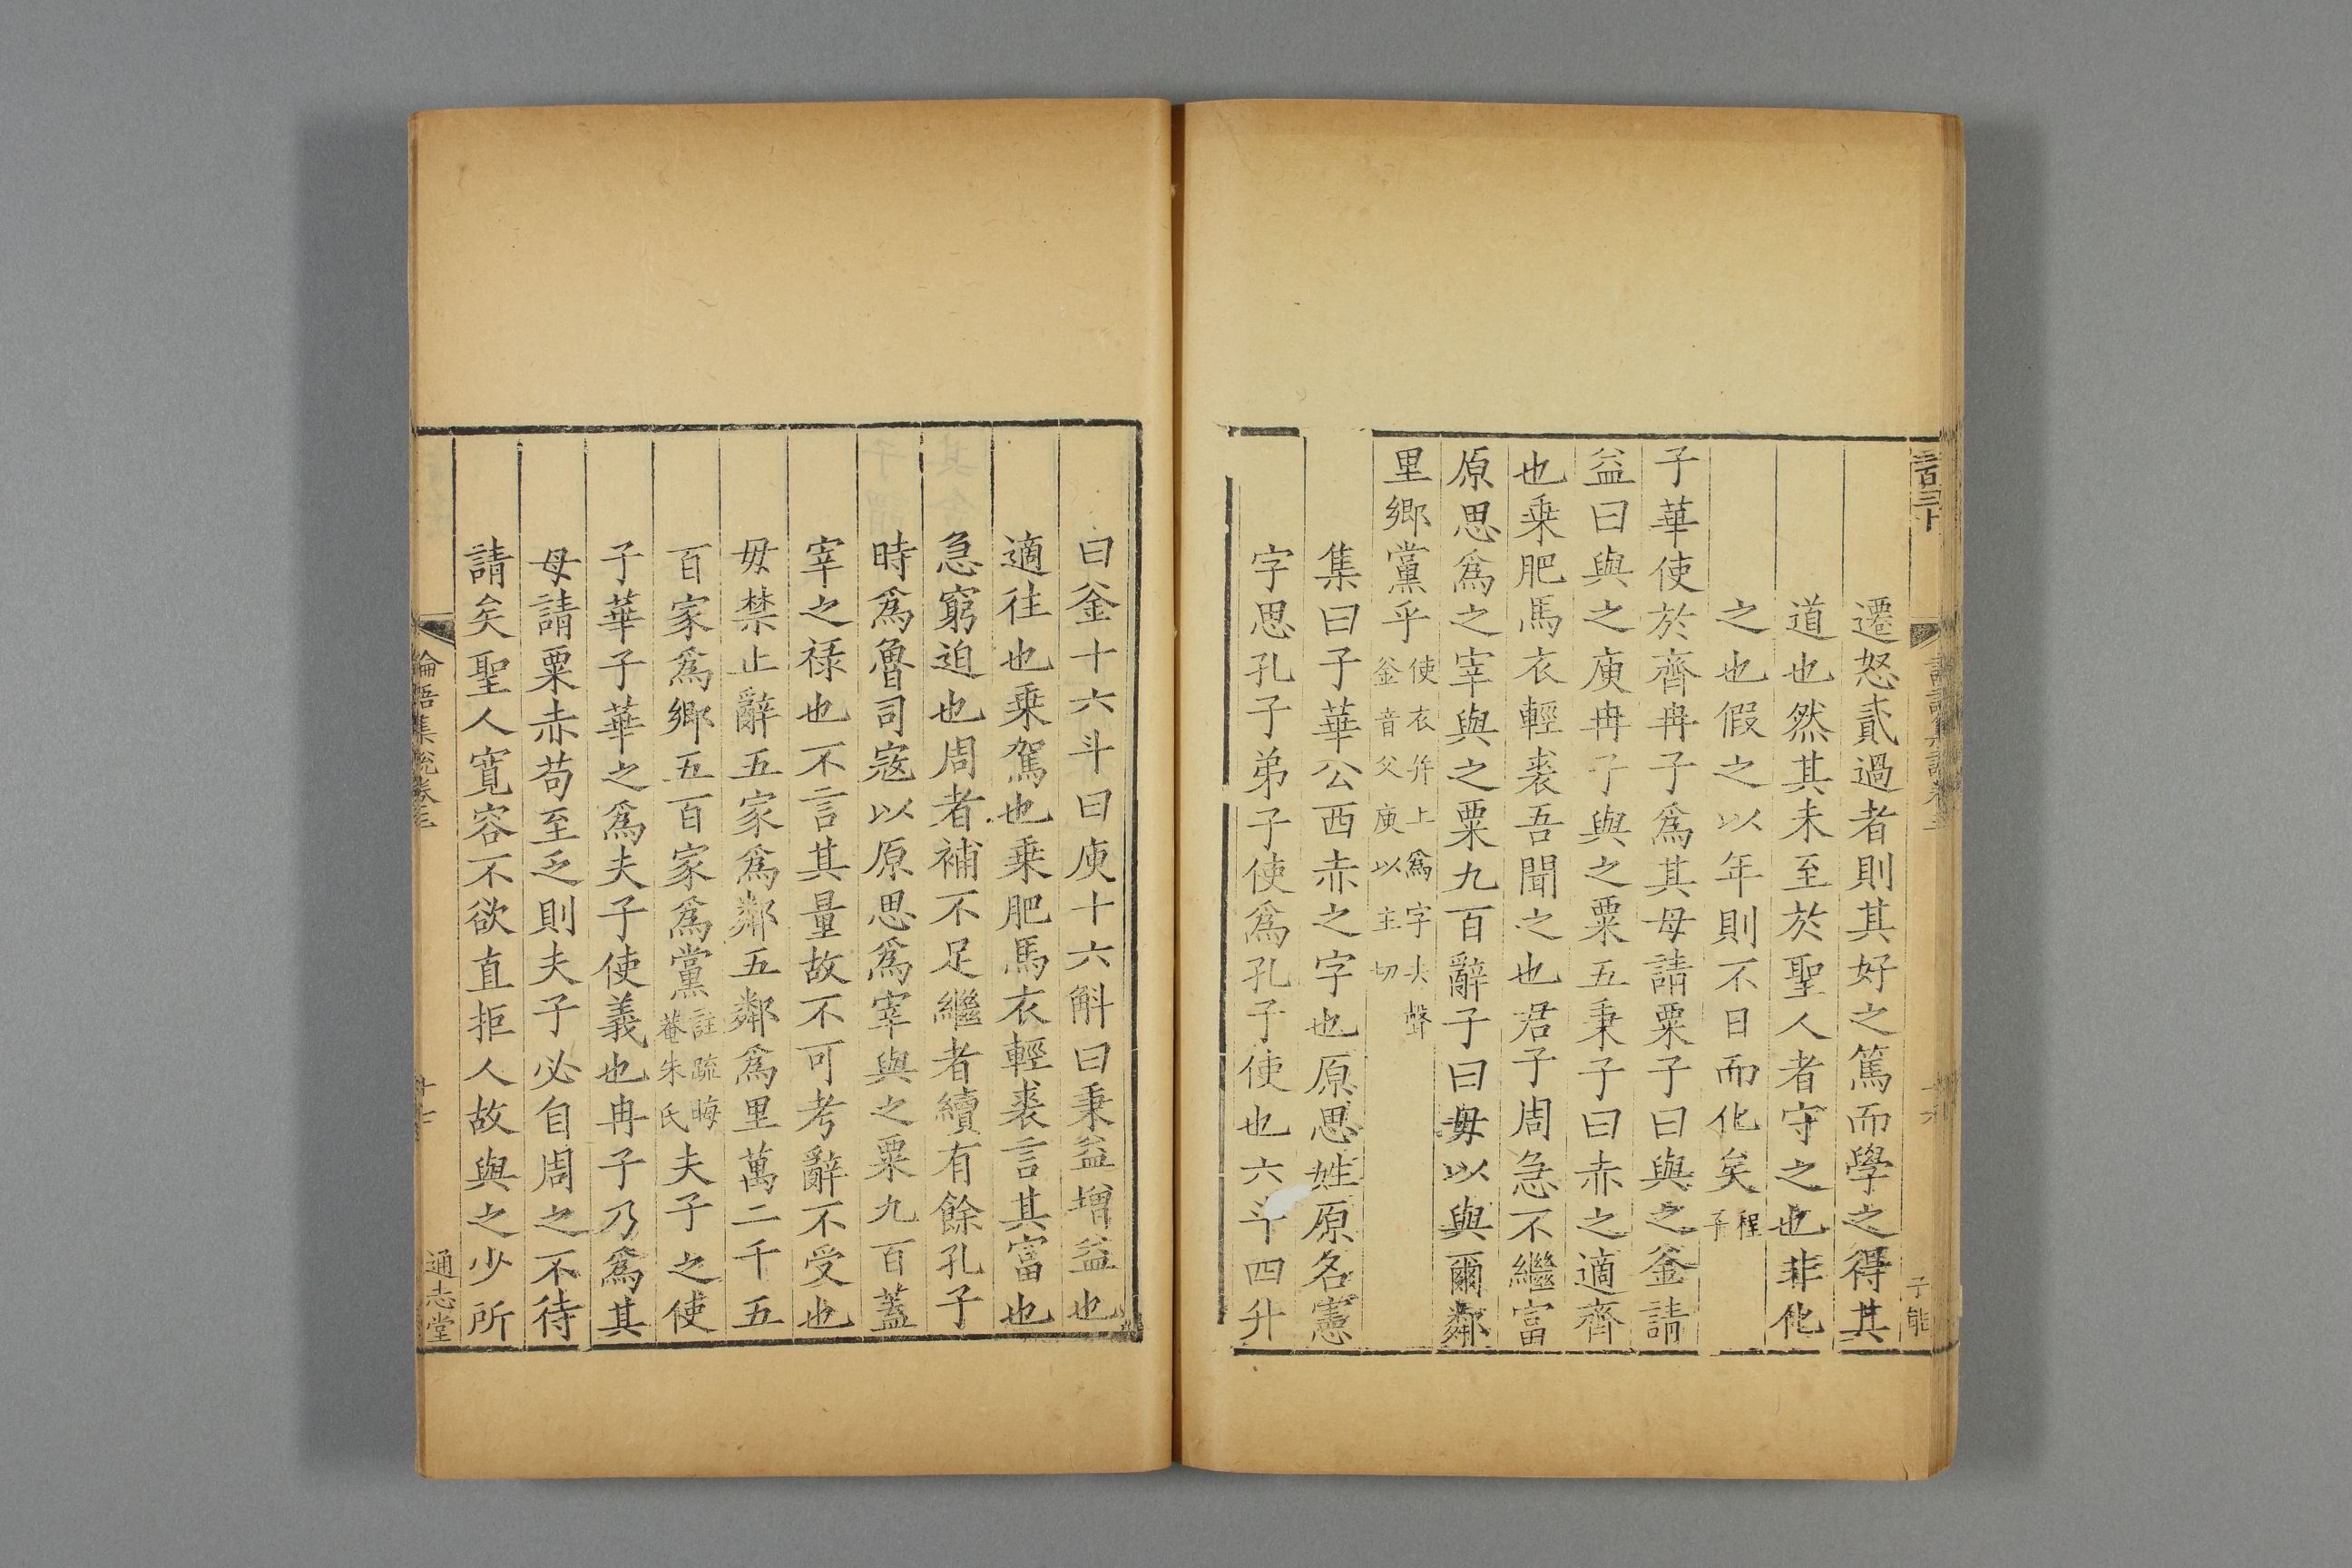 遷怒貳過者則其好之篤而學之得其
道也然其未至於聖人者守之也非化
之也假之以年則不日而化矣程子
子華使於齊冉子爲其母請粟子曰與之釜請
益曰與之庾冉子與之粟五秉子曰赤之適齊
也乗肥馬衣輕裘吾聞之也君子周急不繼富
原思爲之宰與之粟九百辭子曰毋以與爾鄰
里鄉黨乎使衣並上爲字去聲釜音父庾以主切
集曰子華公西赤之字也原思姓原名憲
字思孔子弟子使爲孔子使也六斗四升
曰釜十六斗曰庾十六斛曰秉益增益也
適往也乗駕也乗肥馬衣輕裘言其富也
急窮迫也周者補不足繼者續有餘孔子
時爲魯司寇以原思爲宰與之粟九百蓋
宰之祿也不言其量故不可考辭不受也
毋禁止辭五家爲鄰五鄰爲里萬二千五
百家爲鄉五百家爲黨註疏晦菴朱氏夫子之使
子華子華之爲夫子使義也冉子乃爲其
母請粟赤苟至乏則夫子必自周之不待
請矣聖人寬容不欲直拒人故與之少所
論語集説卷三
通志堂